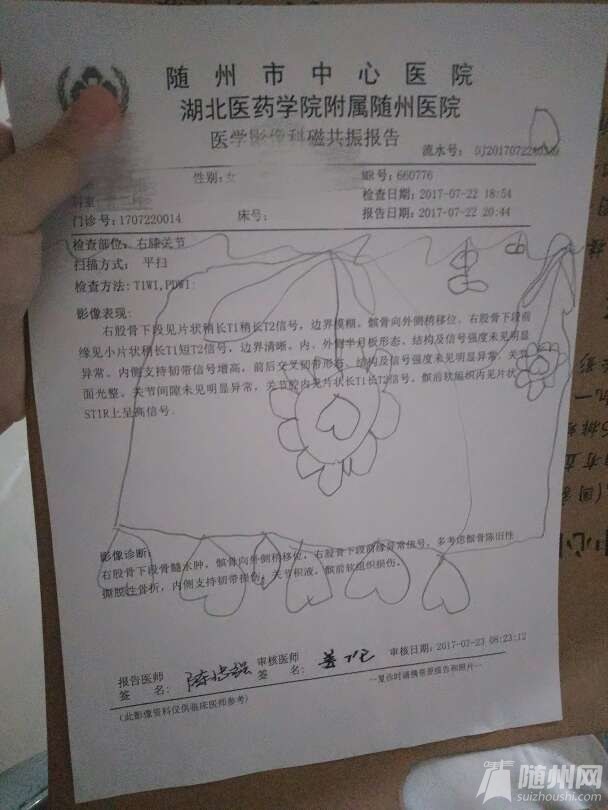 随州市中心医院
湖北医药学院附属随州医院
医学影像科磁共振报告
流水号:
性别: 女 MR号: 660776
检查日期: 2017-07-22 18:54
门诊号: 1707220014 床号: 报告日期: 2017-07-22 20:44
检查部位: 右膝关节
扫描方式: 平扫
检查方法: T1WI,PDWI
影像表现:
右股骨下段见片状稍长T1稍长T2信号，边界模糊。髌骨向外侧稍移位。右股骨下段前
缘见小片状稍长T1短T2信号，边界清晰。内、外侧半月板形态、结构及信号强度未见明显
异常。内侧支持韧带信号增高，前后交叉韧带形态、结构及信号强度未见明显异常。关节
面光整。关节间隙未见明显异常，关节腔内见片状长T1长T2信号。髌前软组织内见片状
STIR上呈高信号.
影像诊断:
右股骨下段骨髓水肿，髌骨向外侧稍移位，右股骨下段前缘异常信号，多考虑髌骨陈旧性
撕脱性骨折，内侧支持韧带损伤，关节积液，髌前软组织损伤。
报告医师 审核医师 审核日期: 2017-07-23 08:23:12
签 名: 签 名: --复诊时请携带原报告和照片--
(此影像资料仅供临床医师参考)
随州网
suizhoushi.com